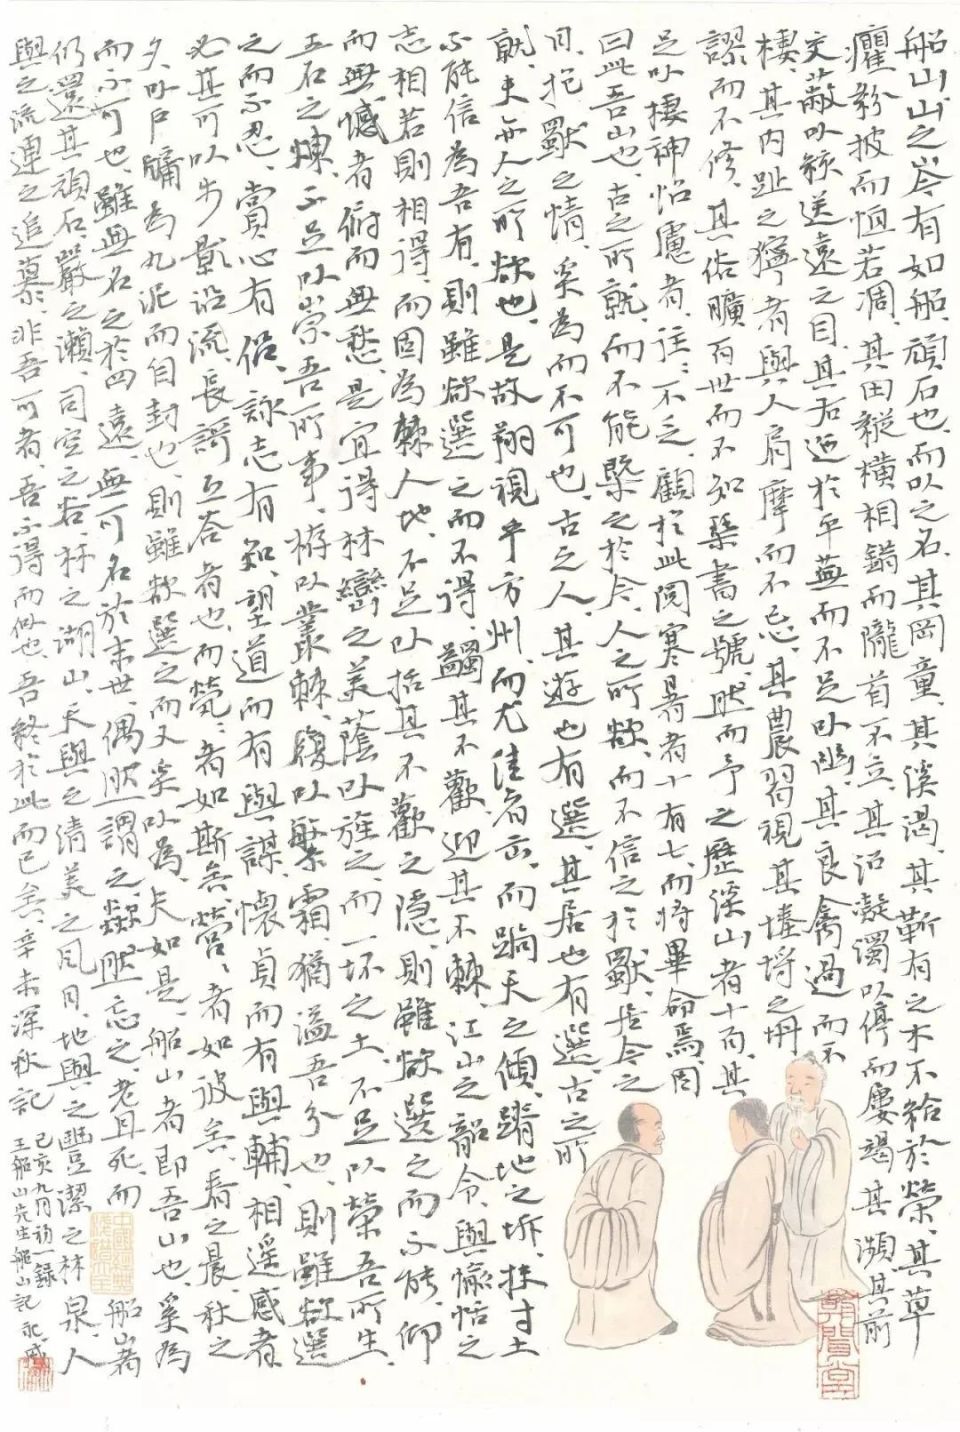 船山山之岑有如船頑石也而以之名其岡童其溪渴其靳有之木不給於榮其草
癯紛披而恒若凋其田縱橫相錯而隴首不立其沼凝濁以停而屢竭其瀕其前
交蔽以綷送遠之目其右迤於平蕪而不足以幽其良禽過而不
棲其內趾之獰者與人肩摩而不忌其農習視其塍埒之坍
謬而不修其俗曠百世而不知琴書之號然而予之歷溪山者十百其
足以棲神怡慮者往往不乏顧於此閱寒暑者十有七而將畢命焉因
曰此吾山也古之所就而不能槩之於今人之所欲而不信之於獸於今之
日抱獸之情奚為而不可也古之人其遊也有選其居也有選古之所
就夫亦人之所欲也是故翔視乎方州而尤佳者出而跼天之傾蹐地之坼扶寸土
不能信為吾有則雖欲選之而不得蠲其不歡迎其不棘江山之韶令與愉恬之
志相若則相得而固為棘人地不足以括其不歡之隱則雖欲選之而不能仰
而無憾者俯而無愁是宜得林巒之美蔭以旌之而一坏之土不足以榮吾所生
五石之煉不足以崇吾所事栫以叢棘履以繁霜猶溢吾分也則雖欲選
之而不忍賞心有侶詠志有知望道而有與謀懷貞而有與輔相遥感者
必其可以步影沿流長謌互荅者也而煢煢者如斯矣營營者如彼矣春之晨秋之
夕以戶牖為丸泥而自封也則雖欲選之而又奚以為夫如是船山者即吾山也奚為
而不可也雖無名之於四遠無可名於末世偶然謂之歘然忘之老且死而船山者
仍還其頑石嚴之瀨司空之谷林之湖山天與之清美之風日地與之豐潔之林泉人
與之流連之追慕非吾可者吾不得而似也吾終於此而已矣辛未深秋記
己亥九月初一錄
王船山先生船山記